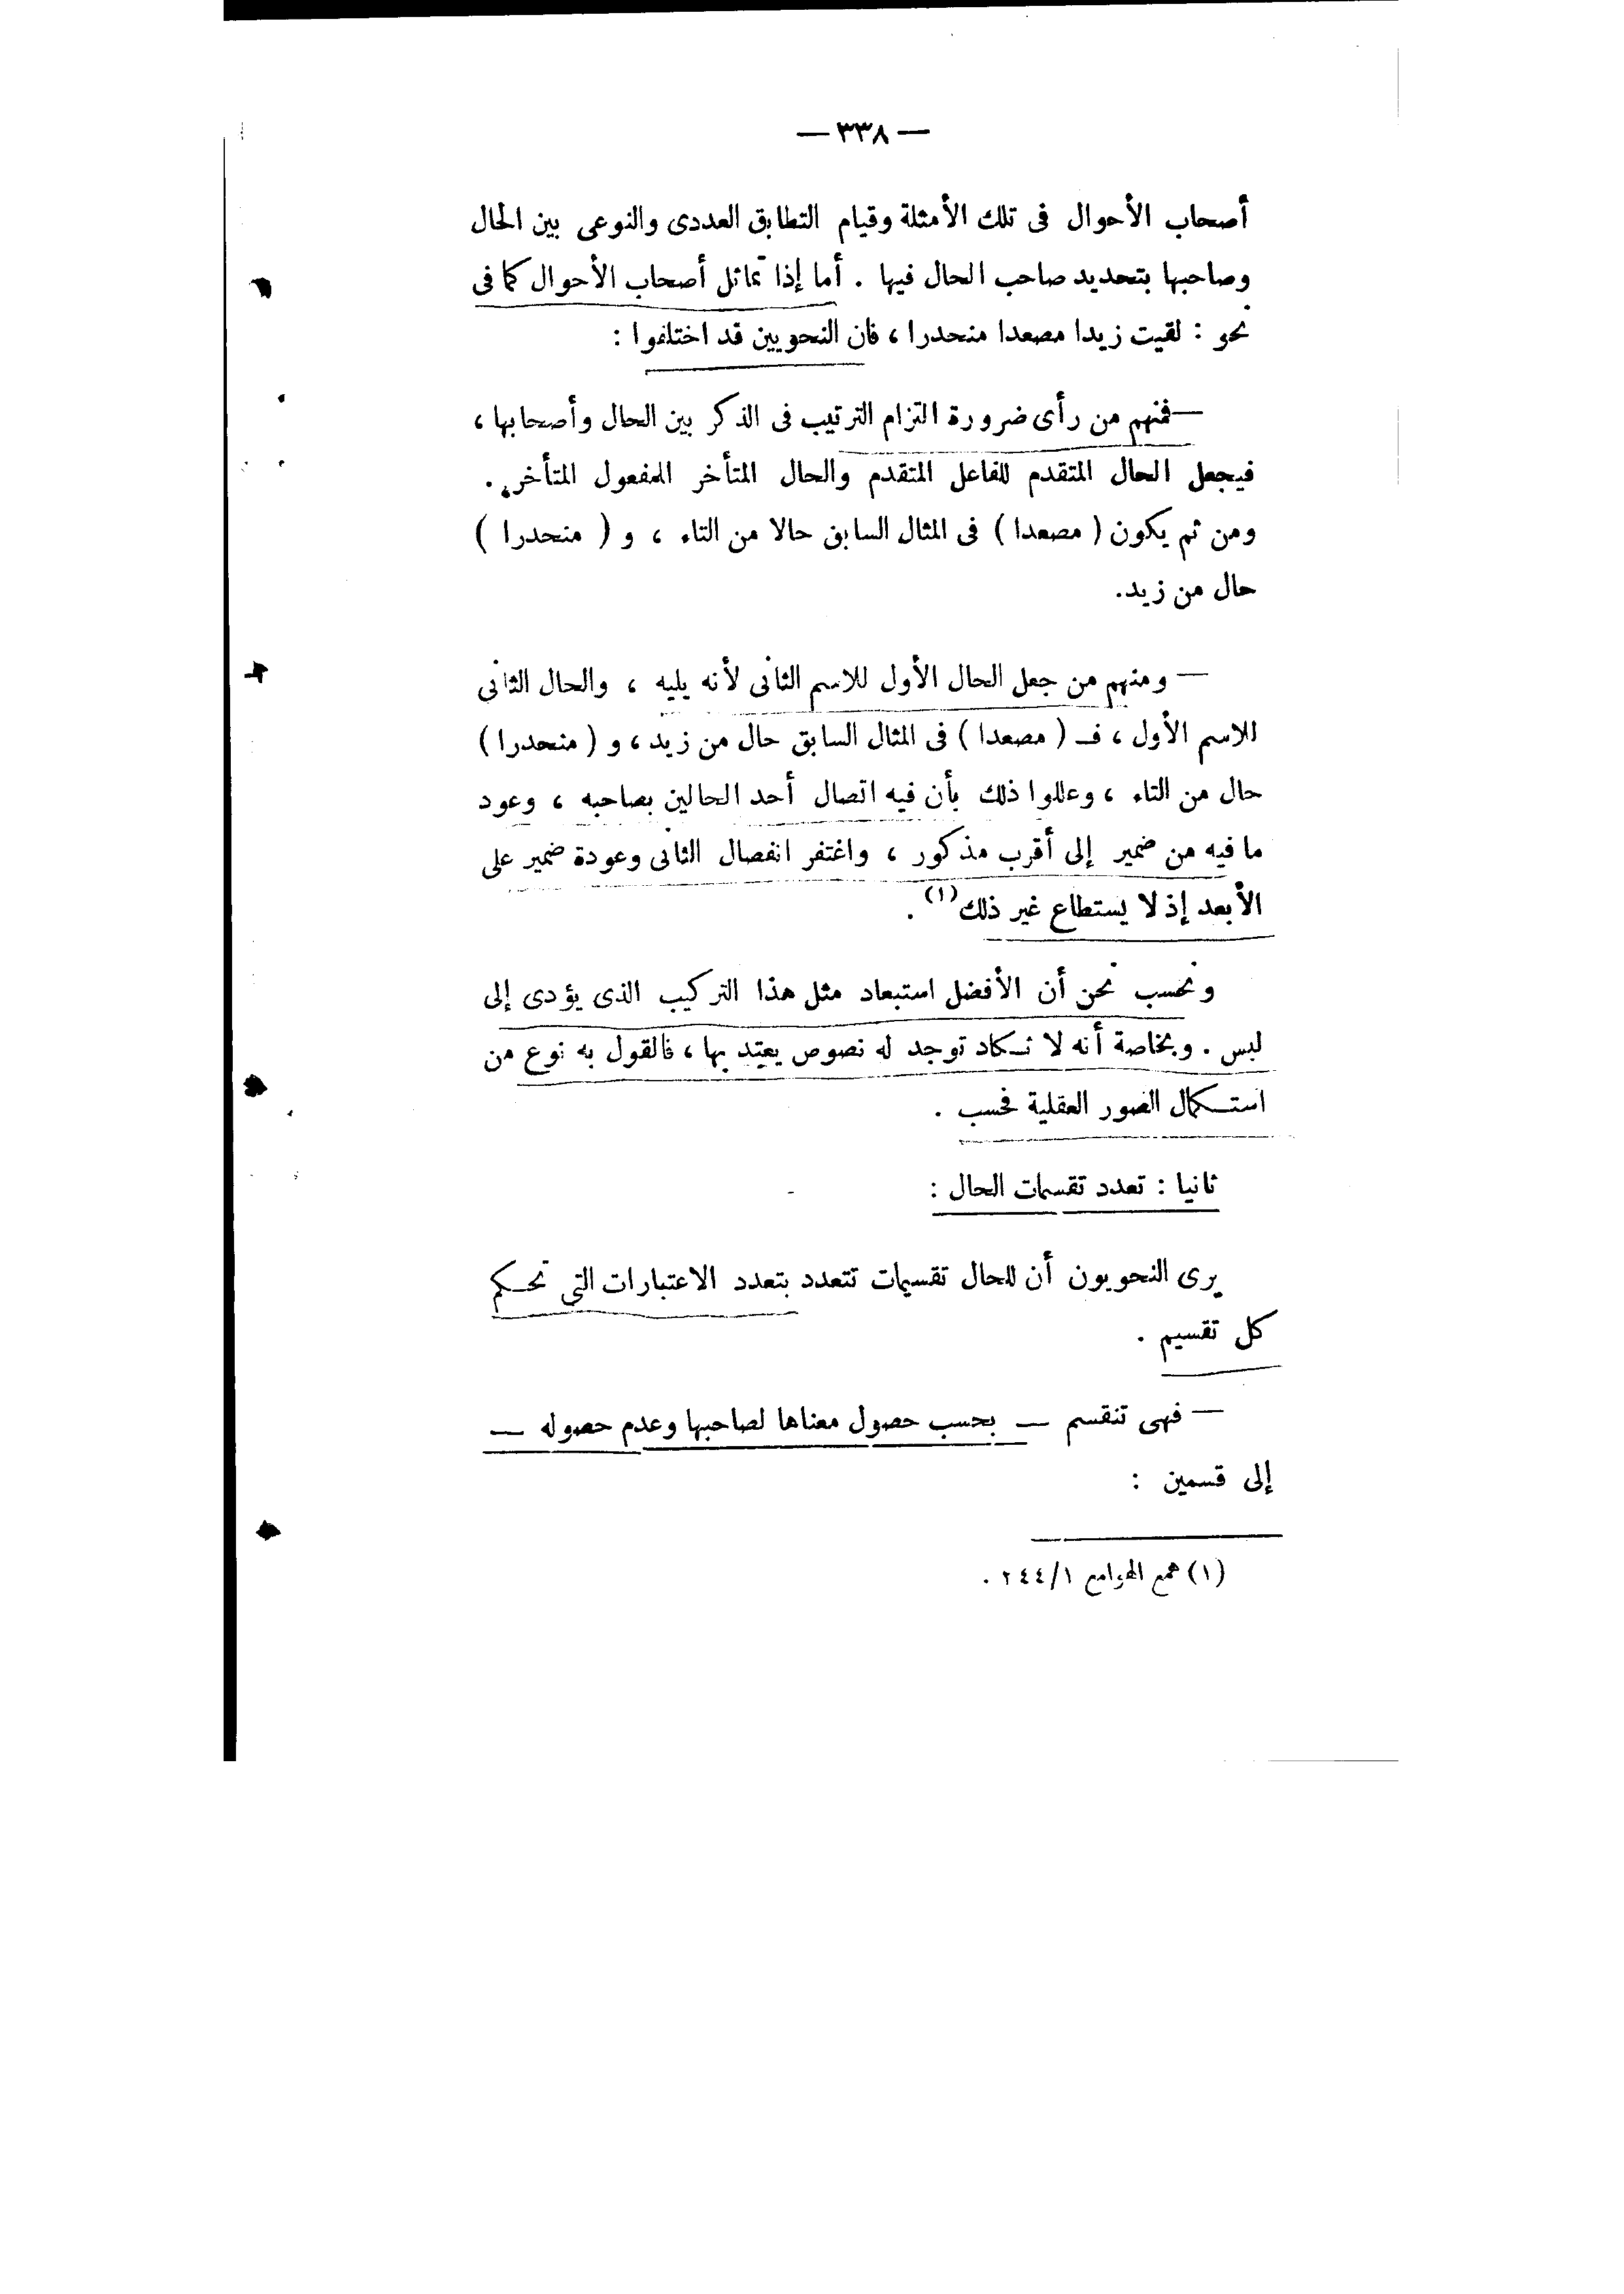 — ٣٣٨ —
أصحاب الأحوال فى تلك الأمثلة وقيام التطابق العددى والنوعى بين الحال
وصاحبها بتحديد صاحب الحال فيها . أما إذا تماثل أصحاب الأحوال كما فى
نحو : لقيت زيدا مصعدا منحدرا ، فان النحويين قد اختلفوا :
— فمنهم من رأى ضرورة التزام الترتيب فى الذكر بين الحال وأصحابها ،
فيجعل الحال المتقدم للفاعل المتقدم والحال المتأخر للمفعول المتأخر .
ومن ثم يكون ( مصعدا ) فى المثال السابق حالا من التاء ، و ( منحدرا )
حال من زيد.
— ومنهم من جعل الحال الأول للاسم الثانى لأنه يليه ، والحال الثانى
للاسم الأول ، فـ ( مصعدا ) فى المثال السابق حال من زيد ، و ( منحدرا )
حال من التاء ، وعللوا ذلك بأن فيه اتصال أحد الحالين بصاحبه ، وعود
ما فيه من ضمير إلى أقرب مذكور ، واغتفر انفصال الثانى وعودة ضمير على
الأبعد إذ لا يستطاع غير ذلك(١) .
ونحسب نحن أن الأفضل استبعاد مثل هذا التركيب الذى يؤدى إلى
لبس . وبخاصة أنه لا تـكاد توجد له نصوص يعتد بها ، فالقول به نوع من
استـكمال الصور العقلية فحسب .
ثانيا : تعدد تقسيمات الحال :
يرى النحويون أن للحال تقسيمات تتعدد بتعدد الاعتبارات التى تحـكم
كل تقسيم .
— فهى تنقسم — بحسب حصول معناها لصاحبها وعدم حصوله —
إلى قسمين :
(١) همع الهوامع ٢٤٤/١ .